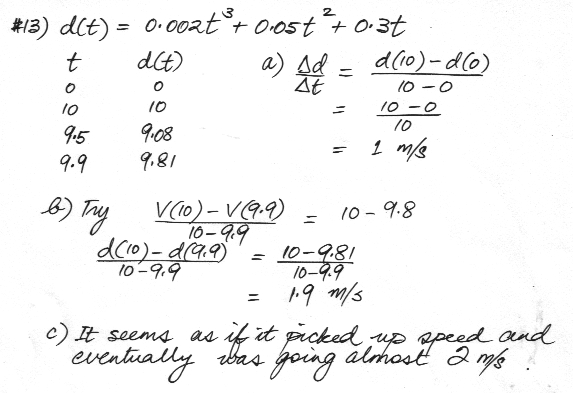 #13) d(t) = 0.002t³ + 0.05t² + 0.3t
t d(t) a) Δd/Δt = (d(10) - d(0))/(10 - 0)
0 0
10 10 = (10 - 0)/10
9.5 9.08
9.9 9.81 = 1 m/s
b) Try (V(10) - V(9.9))/(10 - 9.9) = 10 - 9.8
(d(10) - d(9.9))/(10 - 9.9) = (10 - 9.81)/(10 - 9.9)
= 1.9 m/s
c) It seems as if it picked up speed and
eventually was going almost 2 m/s.